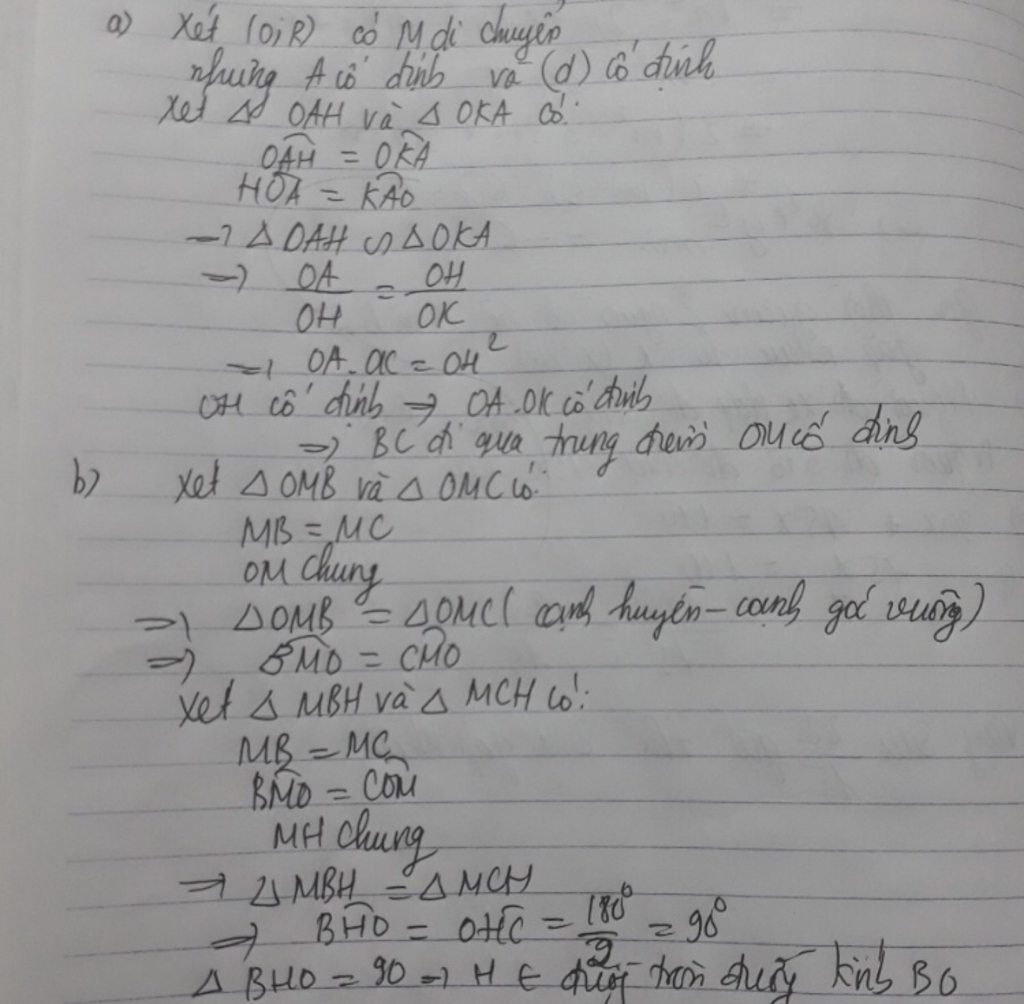 a) Xét (O;R) có M di chuyển
nhưng A cố định và (d) cố định
Xét Δ OAH và Δ OKA có:
OAH = OKA
HOA = KAO
→ Δ OAH ∽ Δ OKA
→ OA/OH = OH/OK
→ OA.OK = OH²
OH cố định → OA.OK cố định
⇒ BC đi qua trung điểm OM cố định
b) Xét Δ OMB và Δ OMC có:
MB = MC
OM chung
⇒ Δ OMB = Δ OMC ( cạnh huyền - cạnh góc vuông)
⇒ BMO = CMO
Xét Δ MBH và Δ MCH có:
MB = MC
BMO = COM
MH chung
⇒ Δ MBH = Δ MCH
⇒ BHO = OHC = 180°/2 = 90°
Δ BHO = 90 → H ∈ đường tròn đường kính BO